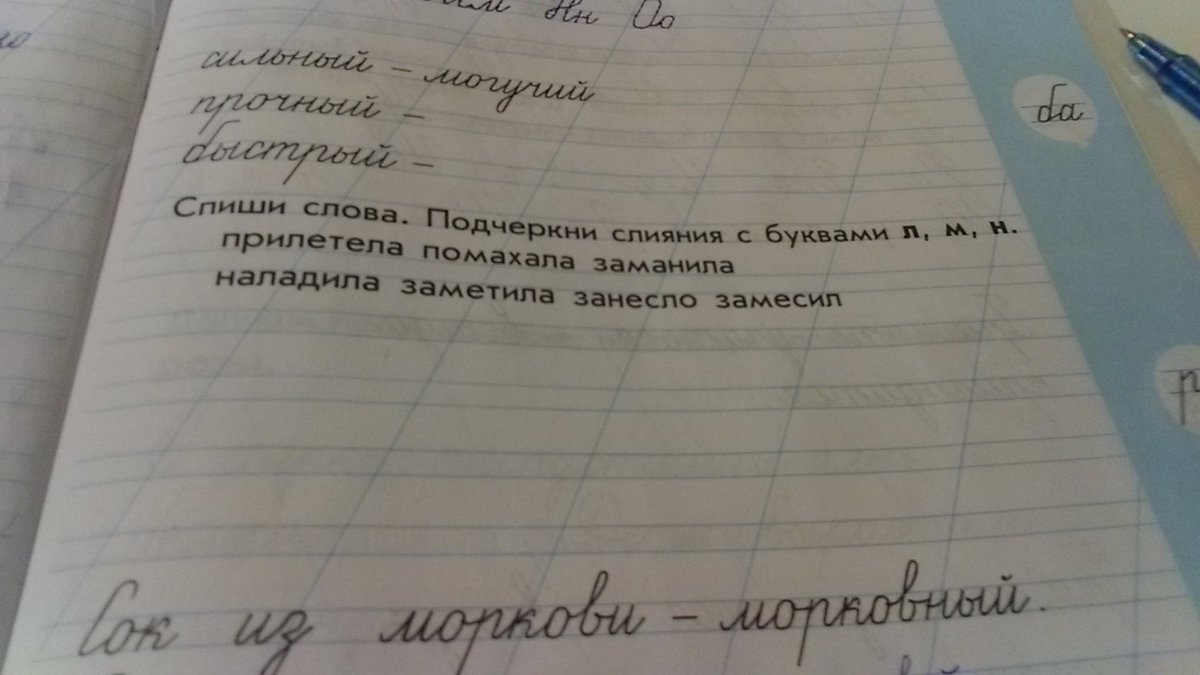 Нн Оо
сильный – могучий
прочный –
быстрый –
да
Спиши слова. Подчеркни слияния с буквами л, м, н.
прилетела помахала заманила
наладила заметила занесло замесил
Сок из моркови – морковный.